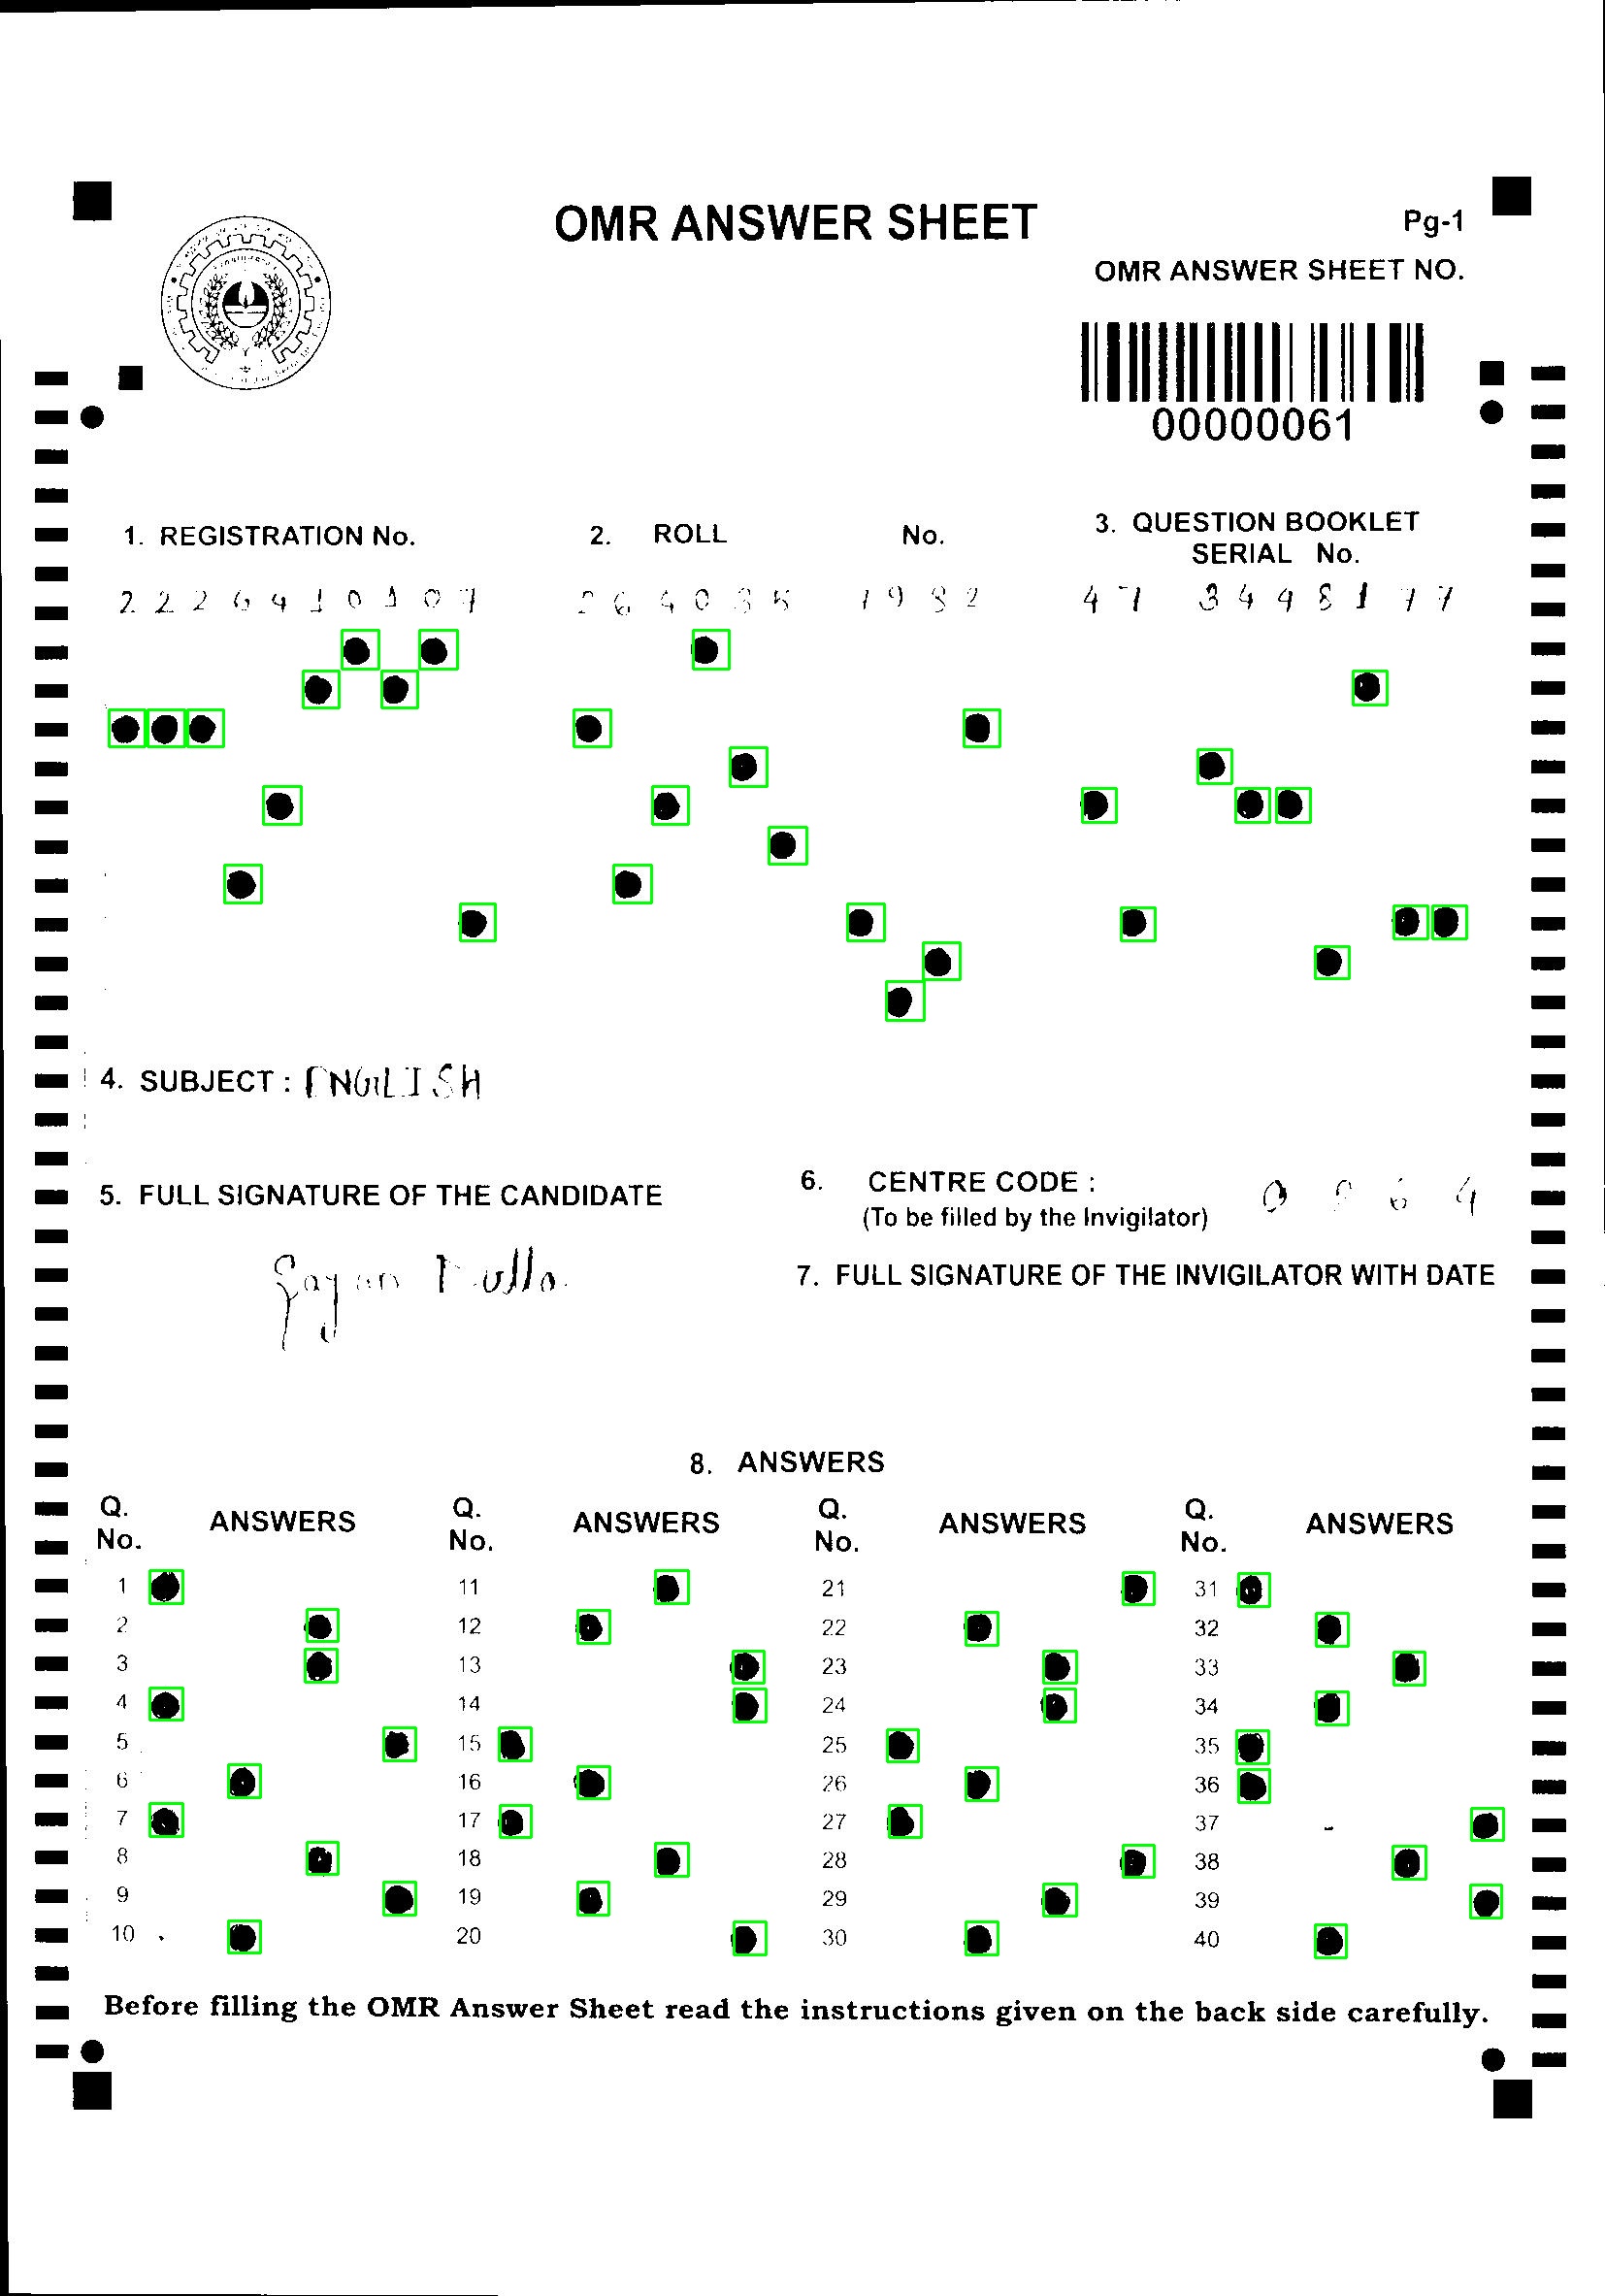 OMR ANSWER SHEET
Pg-1
OMR ANSWER SHEET NO.
00000061
1. REGISTRATION No.
2. ROLL No.
3. QUESTION BOOKLET
SERIAL No.
2 2 2 6 4 1 0 1 0 7
2 6 4 0 3 5 7 9 8 2
4 7 3 4 4 8 1 7 7
4. SUBJECT : ENGLISH
5. FULL SIGNATURE OF THE CANDIDATE
6. CENTRE CODE :
(To be filled by the Invigilator)
0 6 4
7. FULL SIGNATURE OF THE INVIGILATOR WITH DATE
8. ANSWERS
Q. No. ANSWERS Q. No. ANSWERS Q. No. ANSWERS Q. No. ANSWERS
1 11 21 31
2 12 22 32
3 13 23 33
4 14 24 34
5 15 25 35
6 16 26 36
7 17 27 37
8 18 28 38
9 19 29 39
10 20 30 40
Before filling the OMR Answer Sheet read the instructions given on the back side carefully.